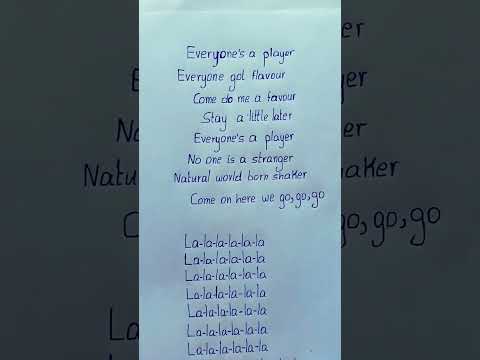 Everyone's a player
Everyone got flavour
Come do me a favour
Stay a little later
Everyone's a player
No one is a stranger
Natural world born shaker
Come on here we go, go, go
La-la-la-la-la-la
La-la-la-la-la-la
La-la-la-la-la-la
La-la-la-la-la-la
La-la-la-la-la-la
La-la-la-la-la-la
La-la-la-la-la-la